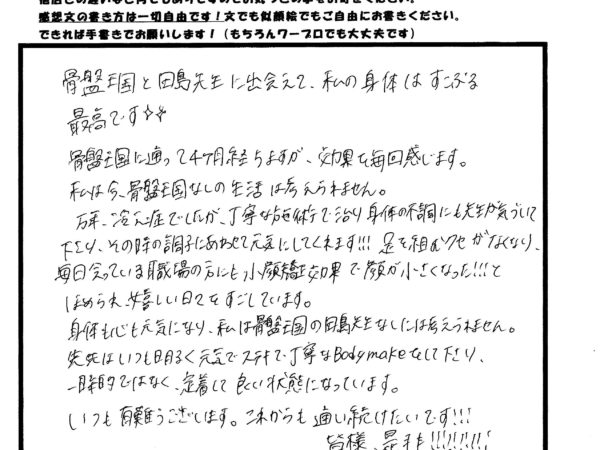 感想文の書き方は一切自由です！文でも似顔絵でもご自由にお書きください。
できれば手書きでお願いします！（もちろんワープロでも大丈夫です）
骨盤王国と田島先生に出会えて、私の身体はすこぶる
最高です☆☆
骨盤王国に通って4ヶ月経ちますが、効果を毎回感じます。
私は今、骨盤王国なしの生活は考えられません。
万年、冷え症でしたが、丁寧な施術で治り身体の不調にも先生が気づいて
下さり、その時の調子にあわせて元気にしてくれます!!! 足を組むクセがなくなり、
毎日会っている職場の方にも小顔矯正効果で顔が小さくなった!!!と
ほめられ、嬉しい日々をすごしています。
身体も心も元気になり、私は骨盤王国の田島先生なしには考えられません。
先生はいつも明るく元気でステキで丁寧なBodymakeをして下さり、
一時的ではなく、定着して良い状態になっています。
いつも有難うございます。これからも通い続けたいです!!!
皆様、是非!!!!!!!!